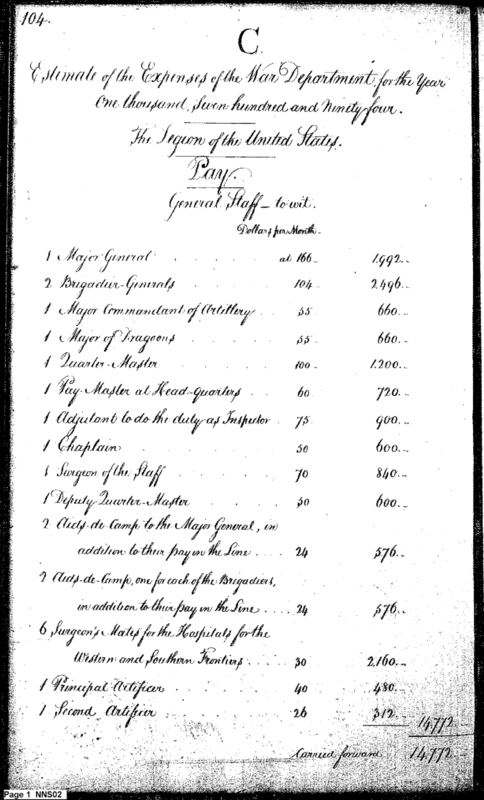 104.
C.
Estimate of the Expenses of the War Department, for the Year
One thousand, Seven hundred and Ninety four.
The Legion of the United States.
Pay.
General Staff - to wit.
Dollars per Month.
1 Major General at 166 1,992..
2 Brigadier-Generals 104 2,496..
1 Major Commandant of Artillery 55 660..
1 Major of Dragoons 55 660..
1 Quarter-Master 100 1,200..
1 Pay-Master at Head-quarters 60 720..
1 Adjutant to do the duty as Inspector 75 900..
1 Chaplain 50 600..
1 Surgeon of the Staff 70 840..
1 Deputy Quarter-Master 50 600..
2 Aids-de-Camp to the Major General, in
addition to their pay in the Line 24 576..
2 Aids-de-Camp, one for each of the Brigadiers,
in addition to their pay in the Line 24 576..
6 Surgeon's Mates for the Hospitals for the
Western and Southern Frontiers 30 2,160..
1 Principal Artificer 40 480..
1 Second Artificer 26 312..
14,772
Carried forward 14,772
Page 1 NNS02